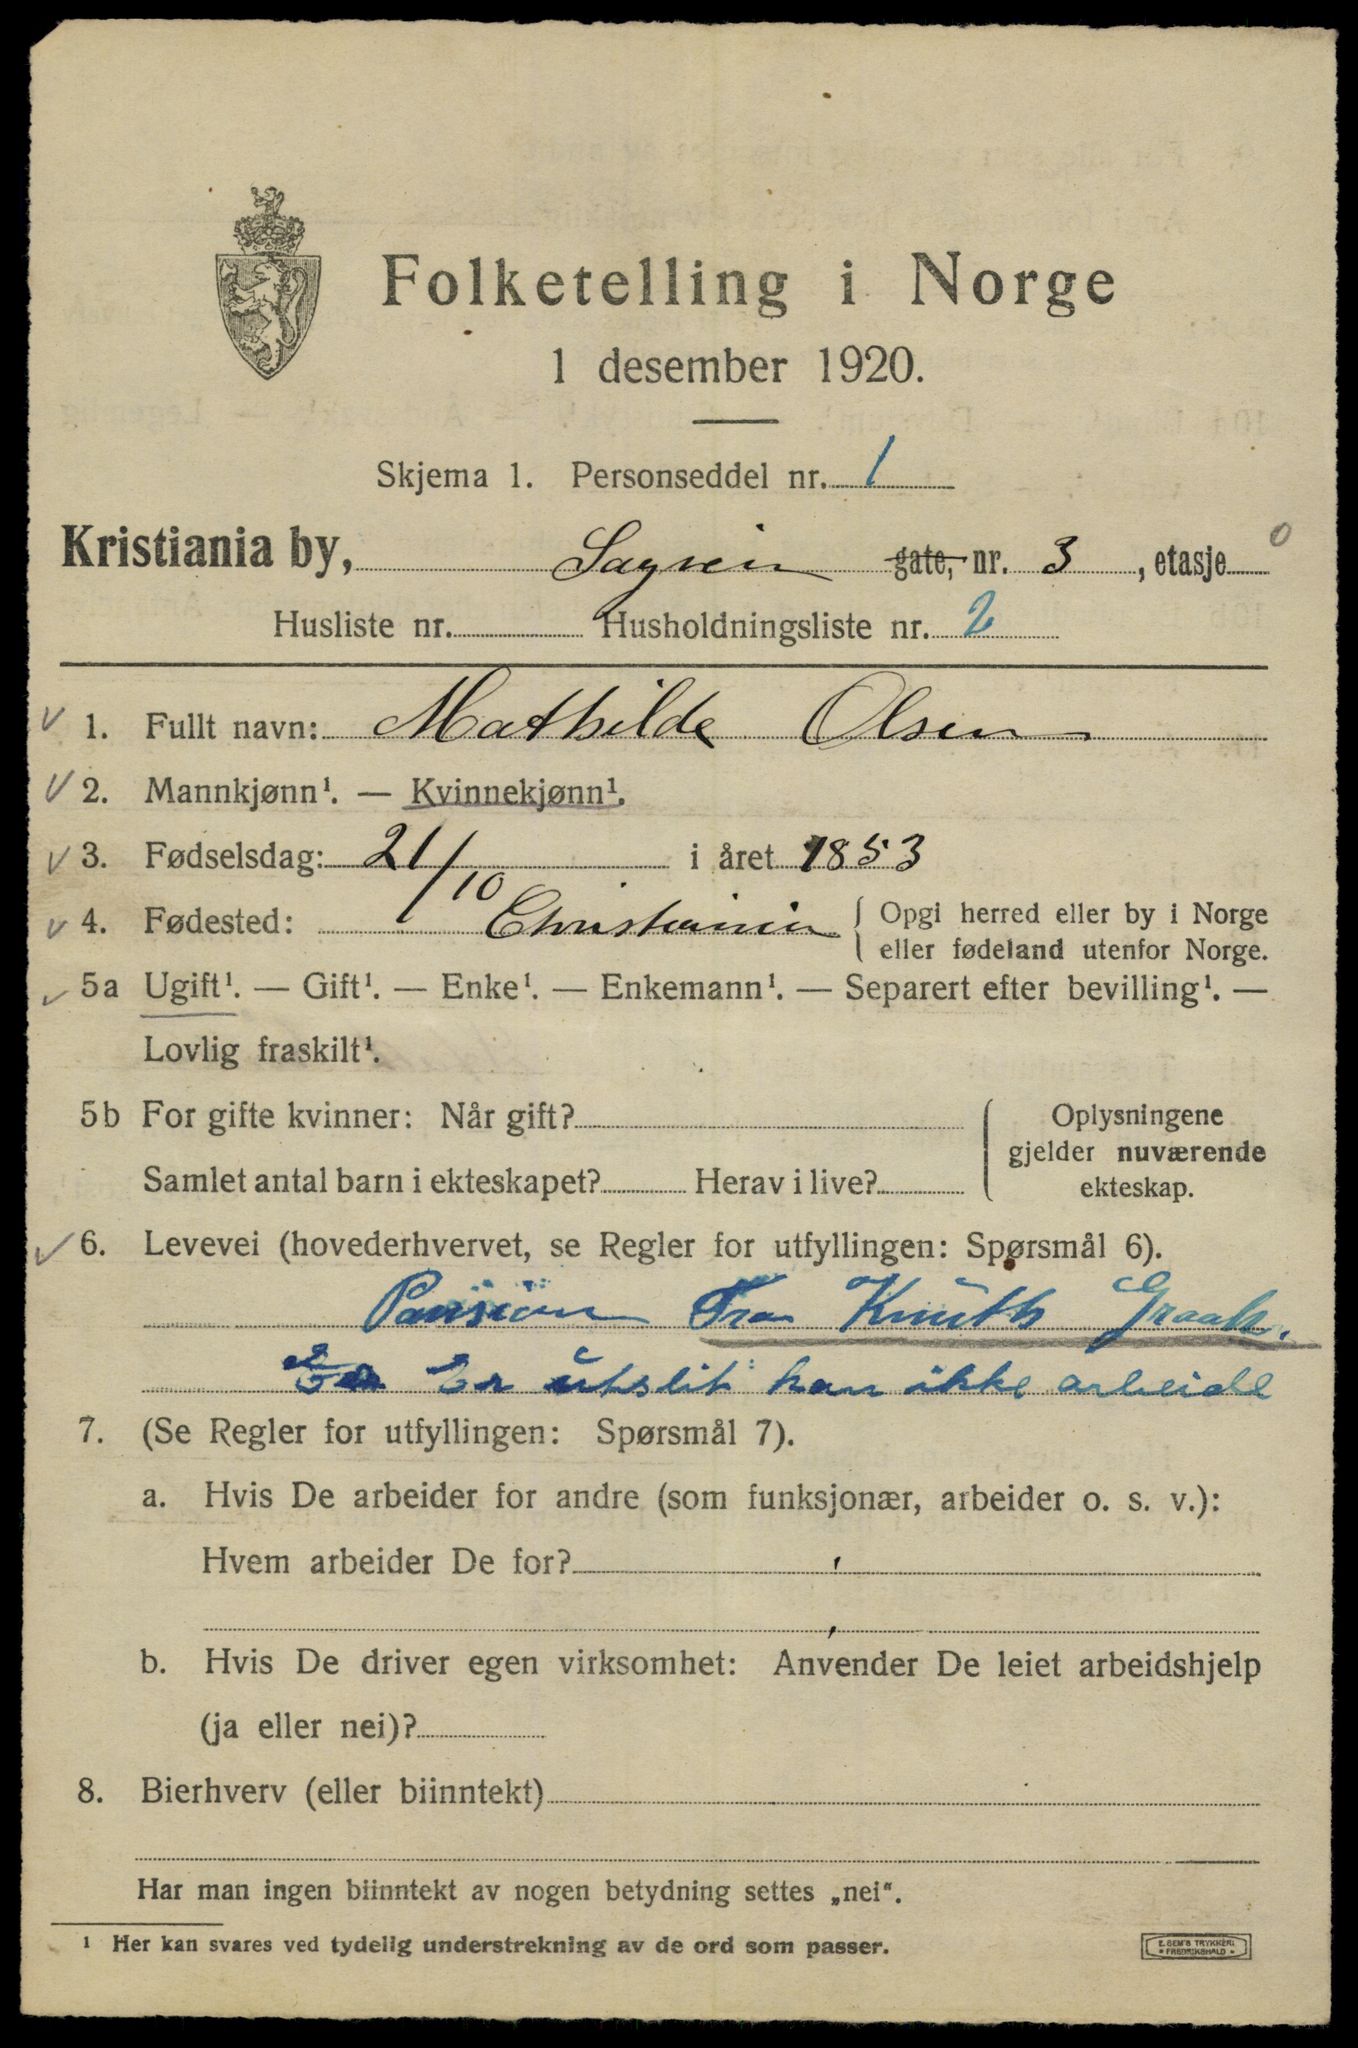 Folketelling i Norge
1 desember 1920.
Skjema 1. Personseddel nr. 1
Kristiania by, Sagvein gate, nr. 3, etasje 0
Husliste nr. Husholdningsliste nr. 2
1. Fullt navn: Mathilde Olsen
2. Mannkjønn¹. — Kvinnekjønn¹.
3. Fødselsdag: 21/10 i året 1853
4. Fødested: Christiania { Opgi herred eller by i Norge
eller fødeland utenfor Norge.
5a Ugift¹. — Gift¹. — Enke¹. — Enkemann¹. — Separert efter bevilling¹. —
Lovlig fraskilt¹.
5b For gifte kvinner: Når gift?
Samlet antal barn i ekteskapet? Herav i live?
Oplysningene
gjelder nuværende
ekteskap.
6. Levevei (hovederhvervet, se Regler for utfyllingen: Spørsmål 6).
Pansion Fra Knuth Graah.
Er Er utslit kan ikke arbeide
7. (Se Regler for utfyllingen: Spørsmål 7).
a. Hvis De arbeider for andre (som funksjonær, arbeider o. s. v.):
Hvem arbeider De for?
b. Hvis De driver egen virksomhet: Anvender De leiet arbeidshjelp
(ja eller nei)?
8. Bierhverv (eller biinntekt)
Har man ingen biinntekt av nogen betydning settes „nei“.
¹ Her kan svares ved tydelig understrekning av de ord som passer.
E. SEM'S TRYKKERI
FREDRIKSHALD